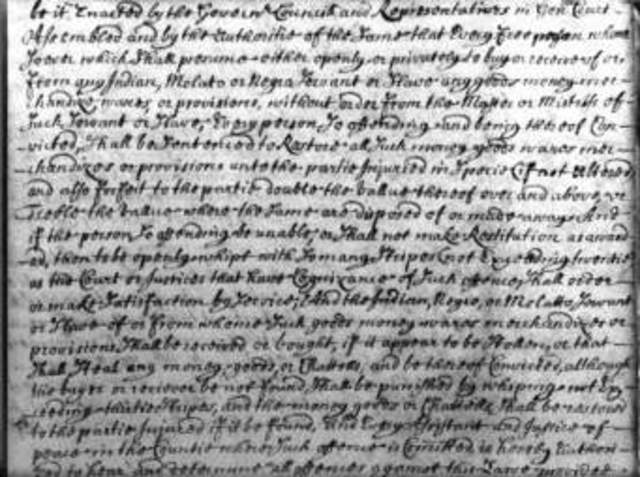 be it Enacted by the Governr Council and Representatives in Gen Court
Assembled and by the Authoritie of the same that Every Free person whome
soever which shall presume either openly or privately to buy or receive of or
from any Indian, Molato or Negro servant or slave any goods money mer-
chandize, wares, or provisions, without order from the Master or Mistress of
such servant or slave, Every person, so offending and being thereof Con-
victed, shall be sentenced to Restore all such money goods wares mer-
chandizes or provisions unto the partie Injured in specie (if not altered)
and also forfeit to the partie double the value thereof over and above, or
treble the value where the same are disposed of or made away. And
if the person so offending be unable, or shall not make Restitution as award
ed, then to be openly whipt with so many stripes (not Exceeding twentie)
as the Court or Justices that have Cognizance of such offence, shall order
or make satisfaction by service, And the Indian, Negro, or Molatto, servant
or slave of or from whome such goods money wares merchandizes or
provisions shall be received or bought, if it appear to be stollen, or that
shall steal any money, goods, or Chattells, and be thereof Convicted, although
the buyer or receiver be not found, shall be punished by whiping not Ex-
ceeding thirtie stripes, and the money goods or Chattells, shall be restored
to the partie Injured if it be found, And Every Assistant and Justice of
peace in the Countie where such offence is Comitted is hereby Authori-
zed to hear and determine all offences against this Law provided